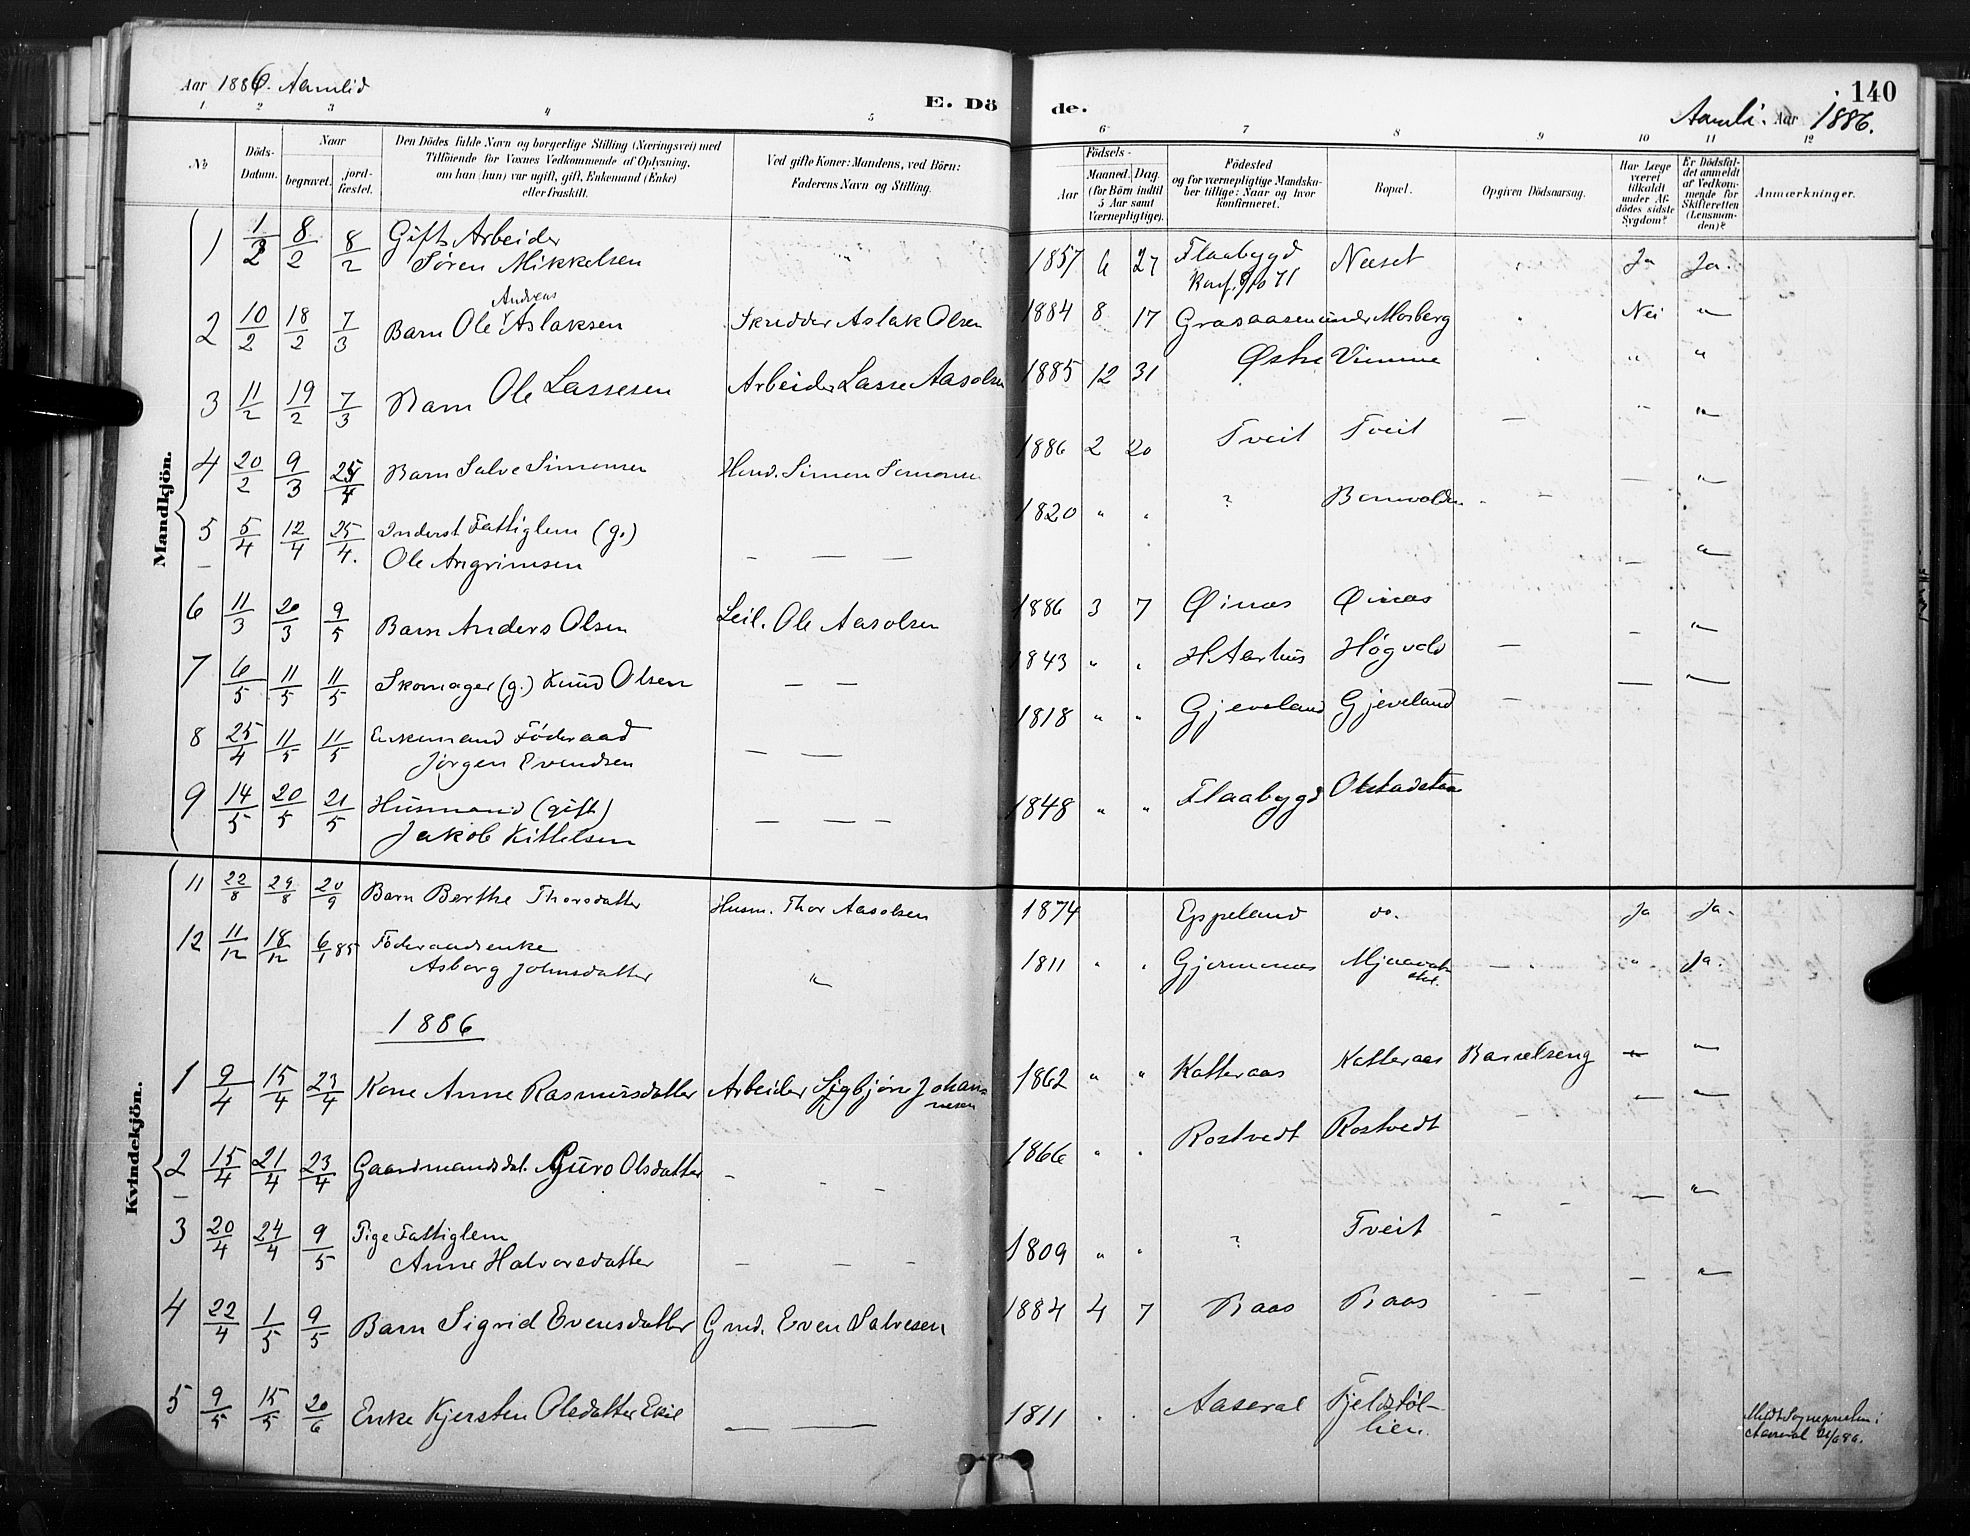 Aar 1886. Aamlid
E. Dö
de.
140
Aamli. Aar 1886.
1 2 3 4 5
6 7 8 9 10 11 12
No
Döds-Datum.
Naar
begravet.
jord-fæstet.
Den Dödes fulde Navn og borgerlige Stilling (Næringsvei) med
Tilföiende for Voxnes Vedkommende af Oplysning,
om han (hun) var ugift, gift, Enkemand (Enke)
eller fraskilt.
Ved gifte Koner: Mandens, ved Börn:
Faderens Navn og Stilling.
Födsels-
Aar
Maaned. Dag.
(for Börn indtil
5 Aar samt
Værnepligtige).
Födested
og for værnepligtige Mandska-
ber tillige: Naar og hvor
konfirmeret.
Bopæl.
Opgiven Dödsaarsag.
Har Læge
været
tilkaldt
under Af-
dödes sidste
Sygdom?
Er Dödsfal-
det anmeldt
af Vedkom-
mende for
Skifteretten
(Lensman-
den)?
Anmærkninger.
Mandkjön.
1 1/2 8/2 8/2 Gift Arbeider
Søren Mikkelsen
1857 6 27 Flaabygd Neset Ja Ja.
Konf. 8/10 71
2 10/2 18/2 7/3 Barn Ole Andreas Aslaksen Skredder Aslak Olsen 1884 8 17 Grasaasen under Mosberg Nei "
3 11/2 19/2 7/3 Barn Ole Lassesen Arbeider Lasse Aasolsen 1885 12 31 Østre Vimme " "
4 20/2 9/3 25/4 Barn Salve Simonsen Simon 1886 2 20 Tveit Tveit — "
5 5/4 12/4 25/4. Inderst Fattiglem (g.)
Ole Arigrimsen — — — 1820 " " ? — "
6 11/3 20/3 9/5 Barn Anders Olsen Leil. Ole Aasolsen 1886 3 7 Øinas Øinas — "
7 6/5 11/5 11/5 Skomager (g.) Knud Olsen — — 1843 " " Høgvold — — "
8 25/4 11/5 11/5 Enkemand Föderaad
Jörgen Evendsen — — 1818 " " Gjeveland Gjeveland — — "
9 14/5 20/5 21/5 Husmand (gift)
Jakob Kittelsen — — — 1848 " " Flaabygd
Kvindekjön.
11 22/8 29/8 20/9 Barn Berthe Thorsdatter Husm. Thor Aasolsen 1874 Eppeland do. Ja Ja.
12 11/12 18/12 6/1 85 Föderaadsenke
Asborg Johnsdatter " 1811 " " — " Ja.
1886
1 9/4 15/4 23/4 Kone Anne Rasmusdatter Arbeider Sigbjörn Johan-
nesen 1862 " " Katteraas Katteraas Barselseng — "
2 15/4 21/4 23/4 Gaardmandsdat. Guro Olsdatter — — — 1866 " " Rostvedt Rostvedt — — "
3 20/4 24/4 9/5 Pige Fattiglem
Anne Halvorsdatter — — — 1809 " " ? Tveit — — "
4 22/4 1/5 9/5 Barn Sigrid Evensdatter Gmd. Even Salvesen 1884 4 7 Raas Raas — — "
5 9/5 15/5 20/6 Enke Kjersten Olsdatter — — 1811 " " Aaseral Fjeldstöl-
lien.
Medt Sognepresten i
Aaseral